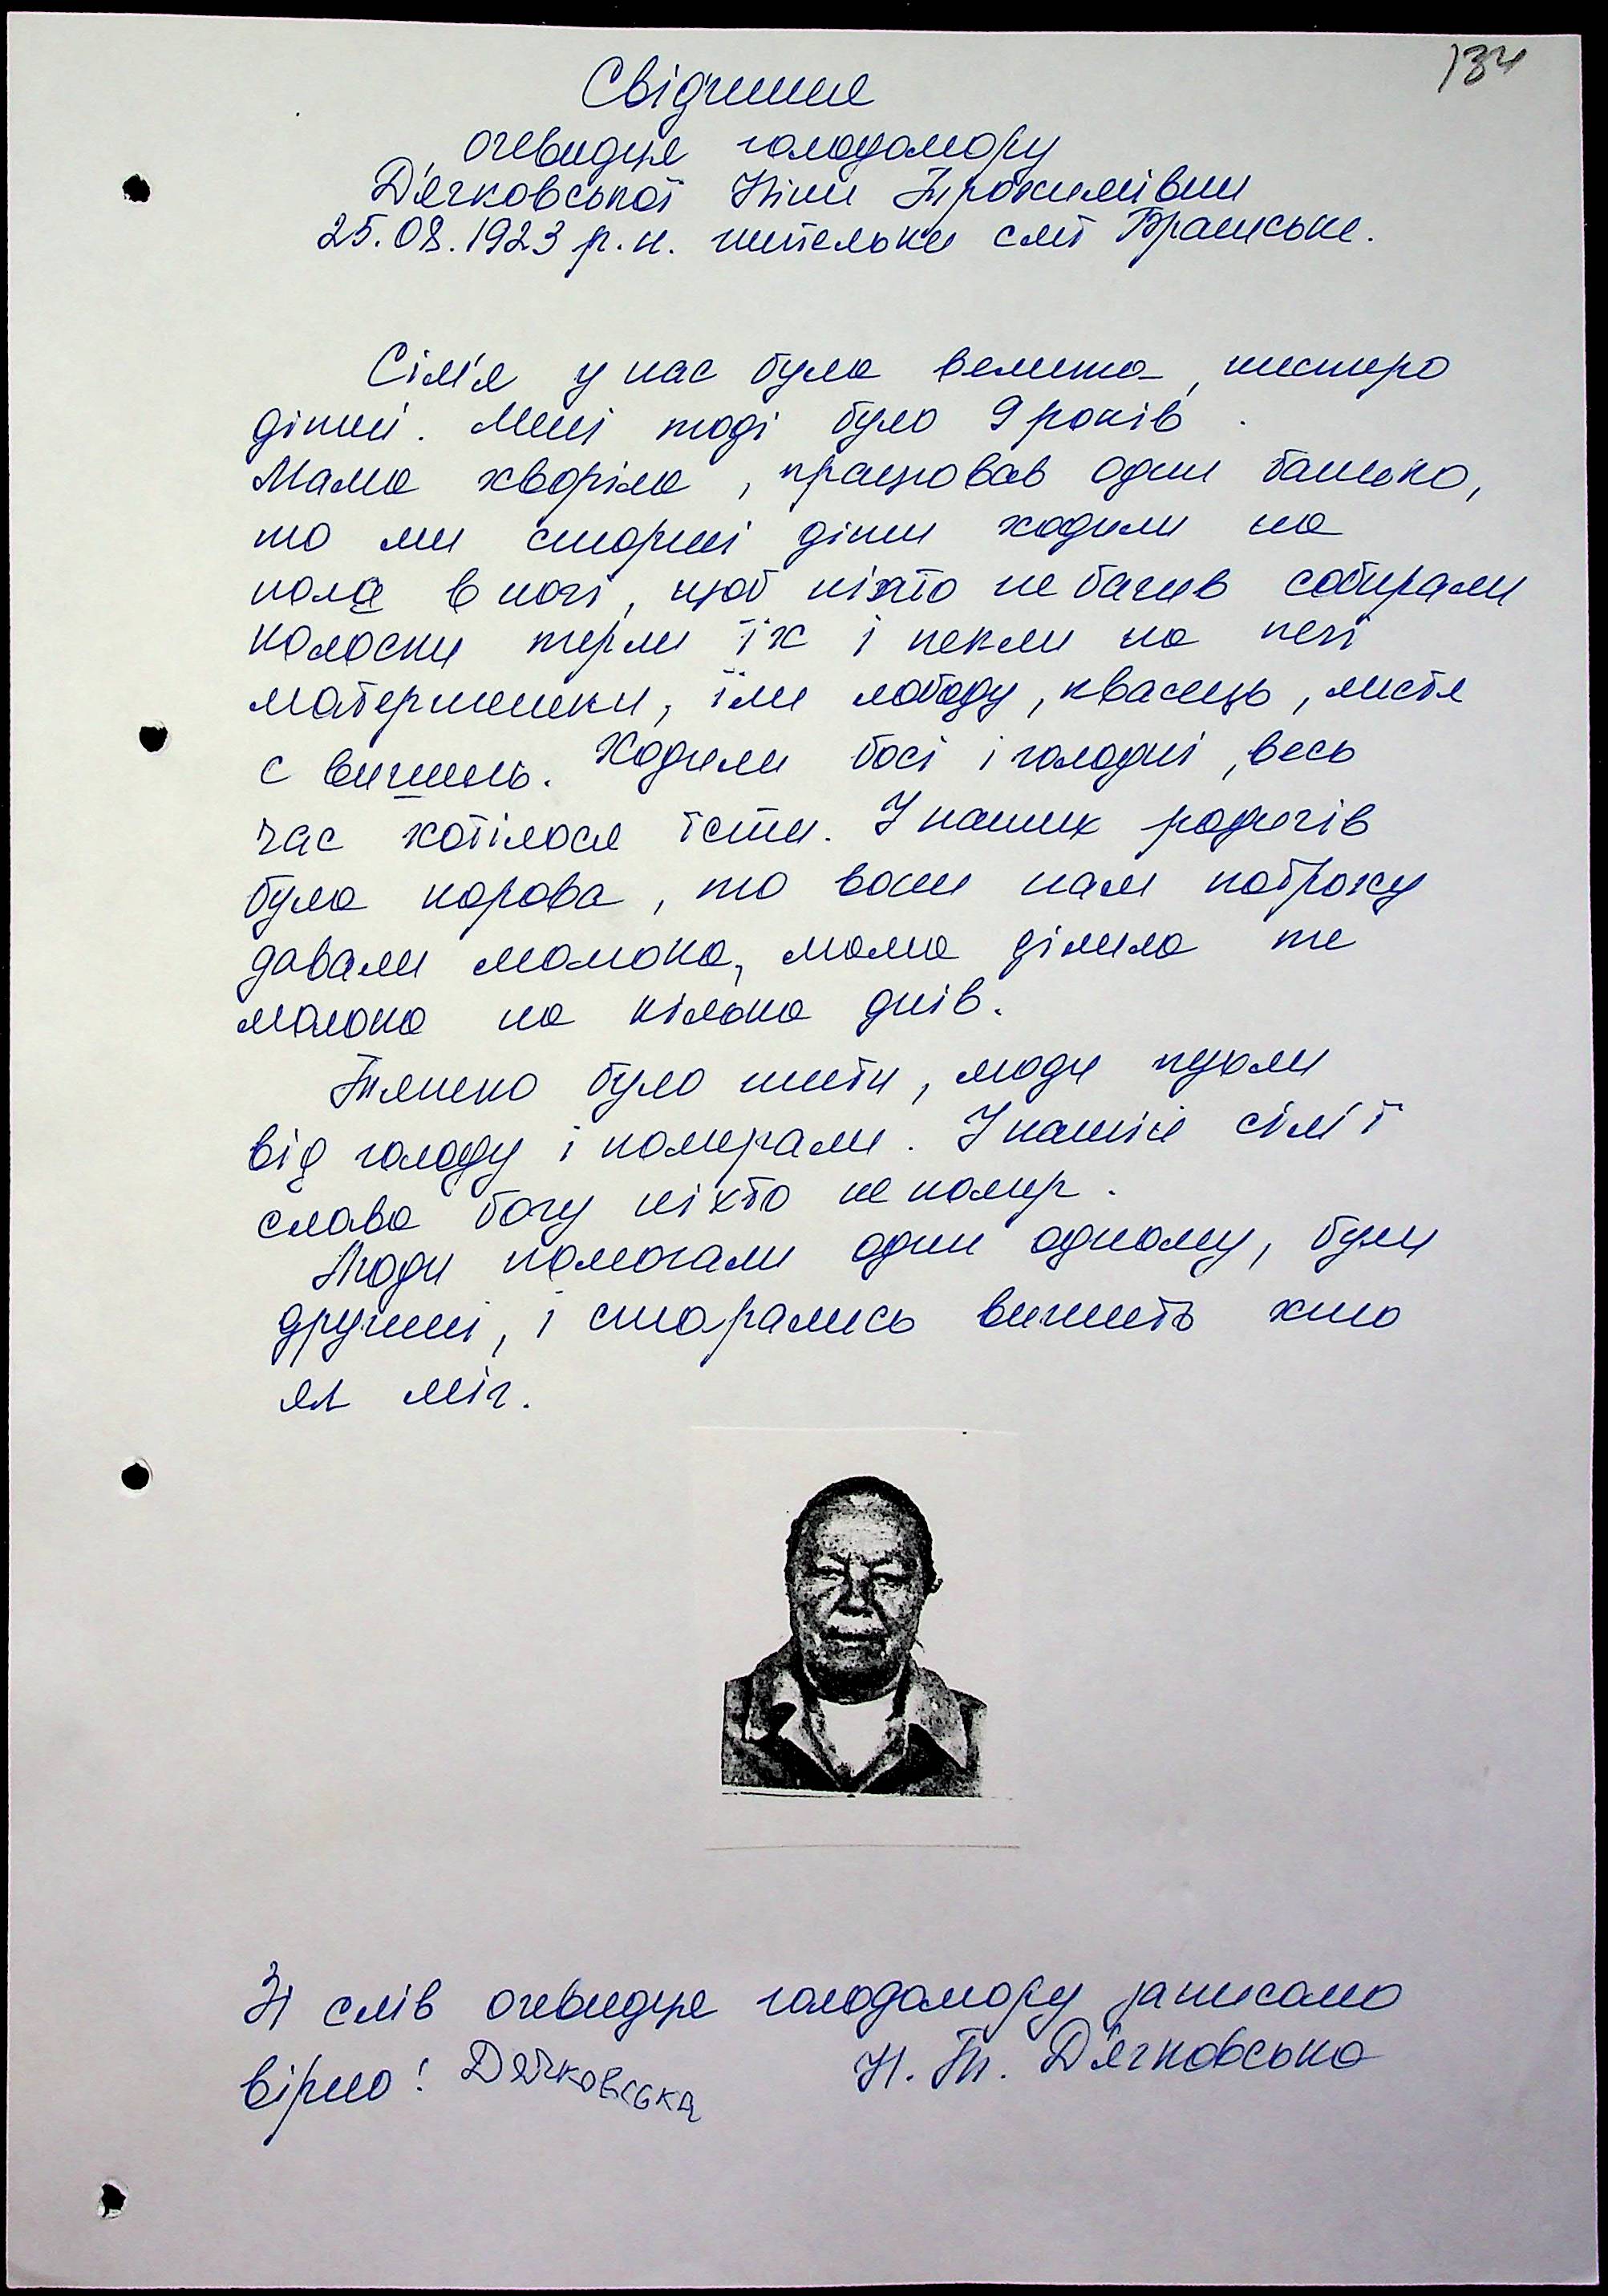 134
Свідчення
очевидця голодомору
Д'ячковської Ніни Трохимівни
25.08.1923 р.н. жительки смт Братське.
Сім'я у нас була велика, шестеро
дітей. Мені тоді було 9 років.
Мама хворіла, працював один батько,
то ми старші діти ходили на
поля в ночі, щоб ніхто не бачив собирали
колоски терли їх і пекли на печі
маторженики, їли лободу, квасець, листя
с вишень. Ходили босі і голодні, весь
час хотілося їсти. У наших родичів
була корова, то вони нам потроху
давали молока, мама ділила те
молоко на кілька днів.
Тяжко було жити, люди пухли
від голоду і помирали. У нашій сім'ї
слава богу ніхто не помер.
Люди помогали один одному, були
дружні, і старались вижить хто
як міг.
Зі слів очевидця голодомору записано
вірно! Дячковська Н. Т. Д'ячковська